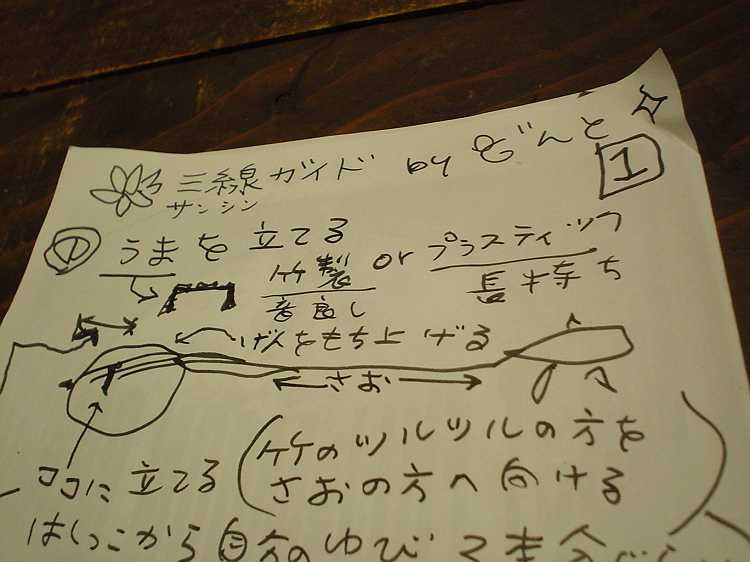 三線ガイド by どんと 1
サンシン
① うまを立てる
竹製 or プラスティック
音良し 長持ち
げんをもち上げる
さお
ココに立てる (竹のツルツルの方を
さおの方へ向ける)
はしっこから自分のゆび2本分